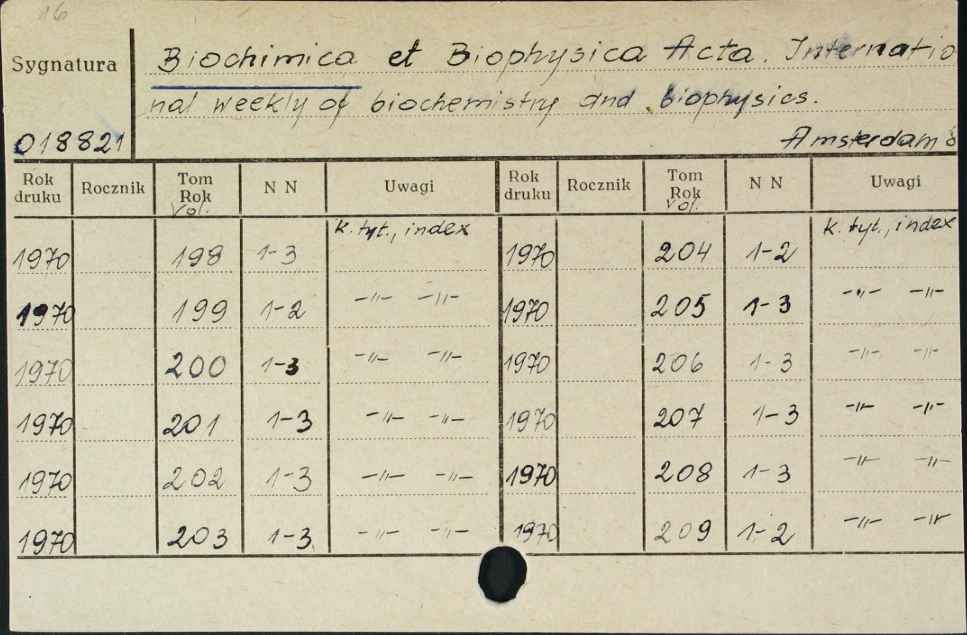 16
Sygnatura
Biochimica et Biophysica Acta. Internatio
nal weekly of biochemistry and biophysics.
018821
Amsterdam
Rok druku Rocznik Tom Rok Vol. N N Uwagi Rok druku Rocznik Tom Rok Vol. N N Uwagi
1970 198 1-3 k. tyt., index 1970 204 1-2 k. tyt., index
1970 199 1-2 -"- -"- 1970 205 1-3 -"- -"-
1970 200 1-3 -"- -"- 1970 206 1-3 -"- -"-
1970 201 1-3 -"- -"- 1970 207 1-3 -"- -"-
1970 202 1-3 -"- -"- 1970 208 1-3 -"- -"-
1970 203 1-3 -"- -"- 1970 209 1-2 -"- -"-